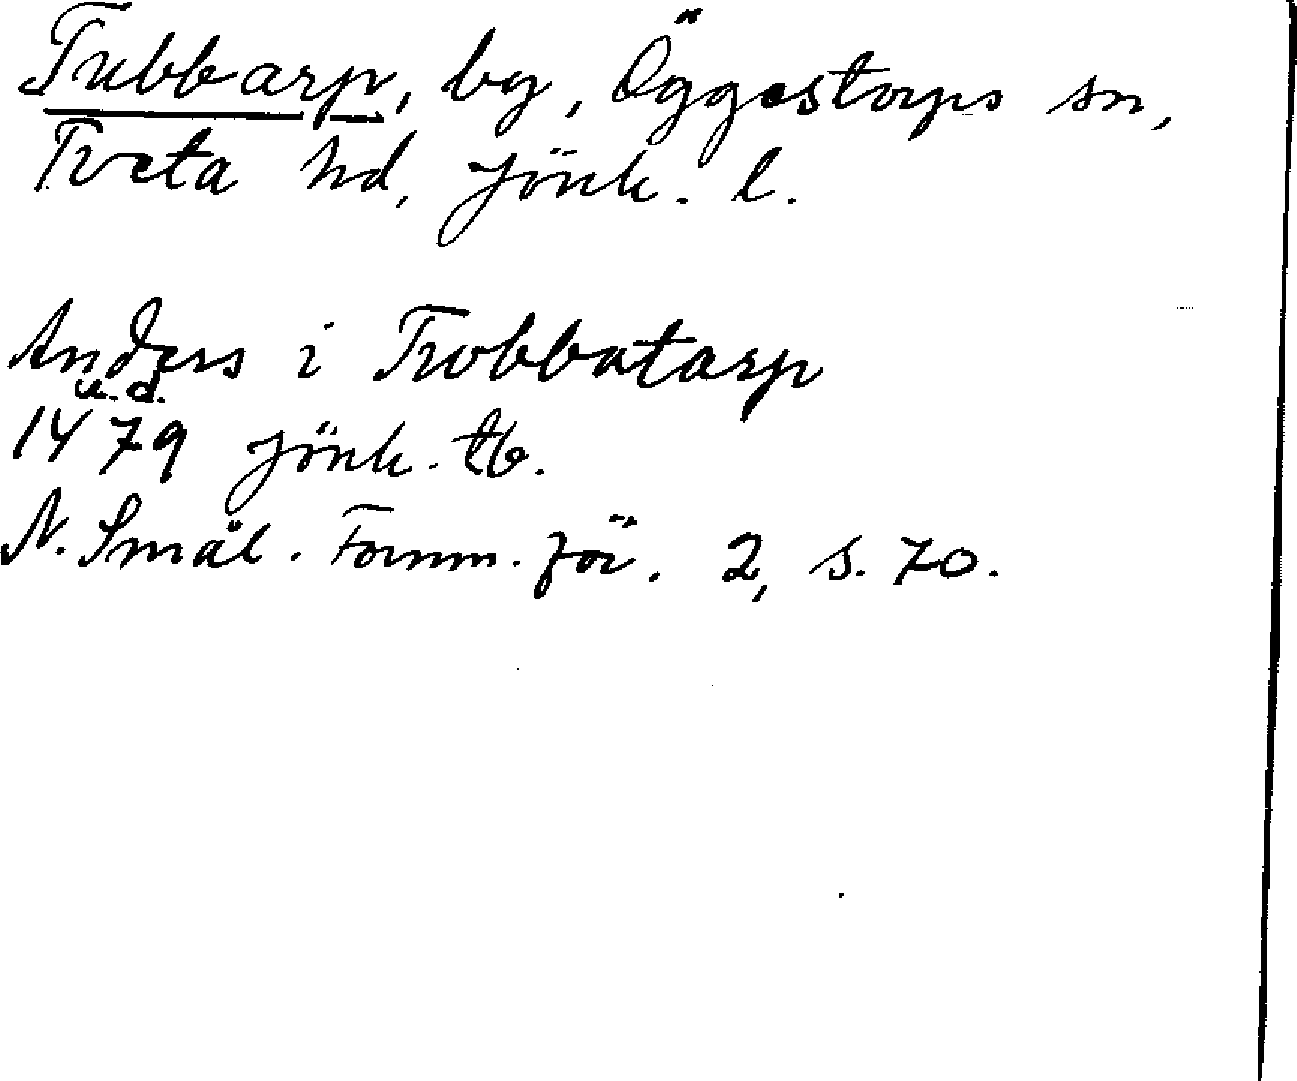 Tubbarp, by, Öggestorps sn,
Tveta hd, Jönk. l.
Anders i Trobbatarp
u.d.
1479 Jönk. tb.
N. Smål. Fornm. för. 2, s. 70.